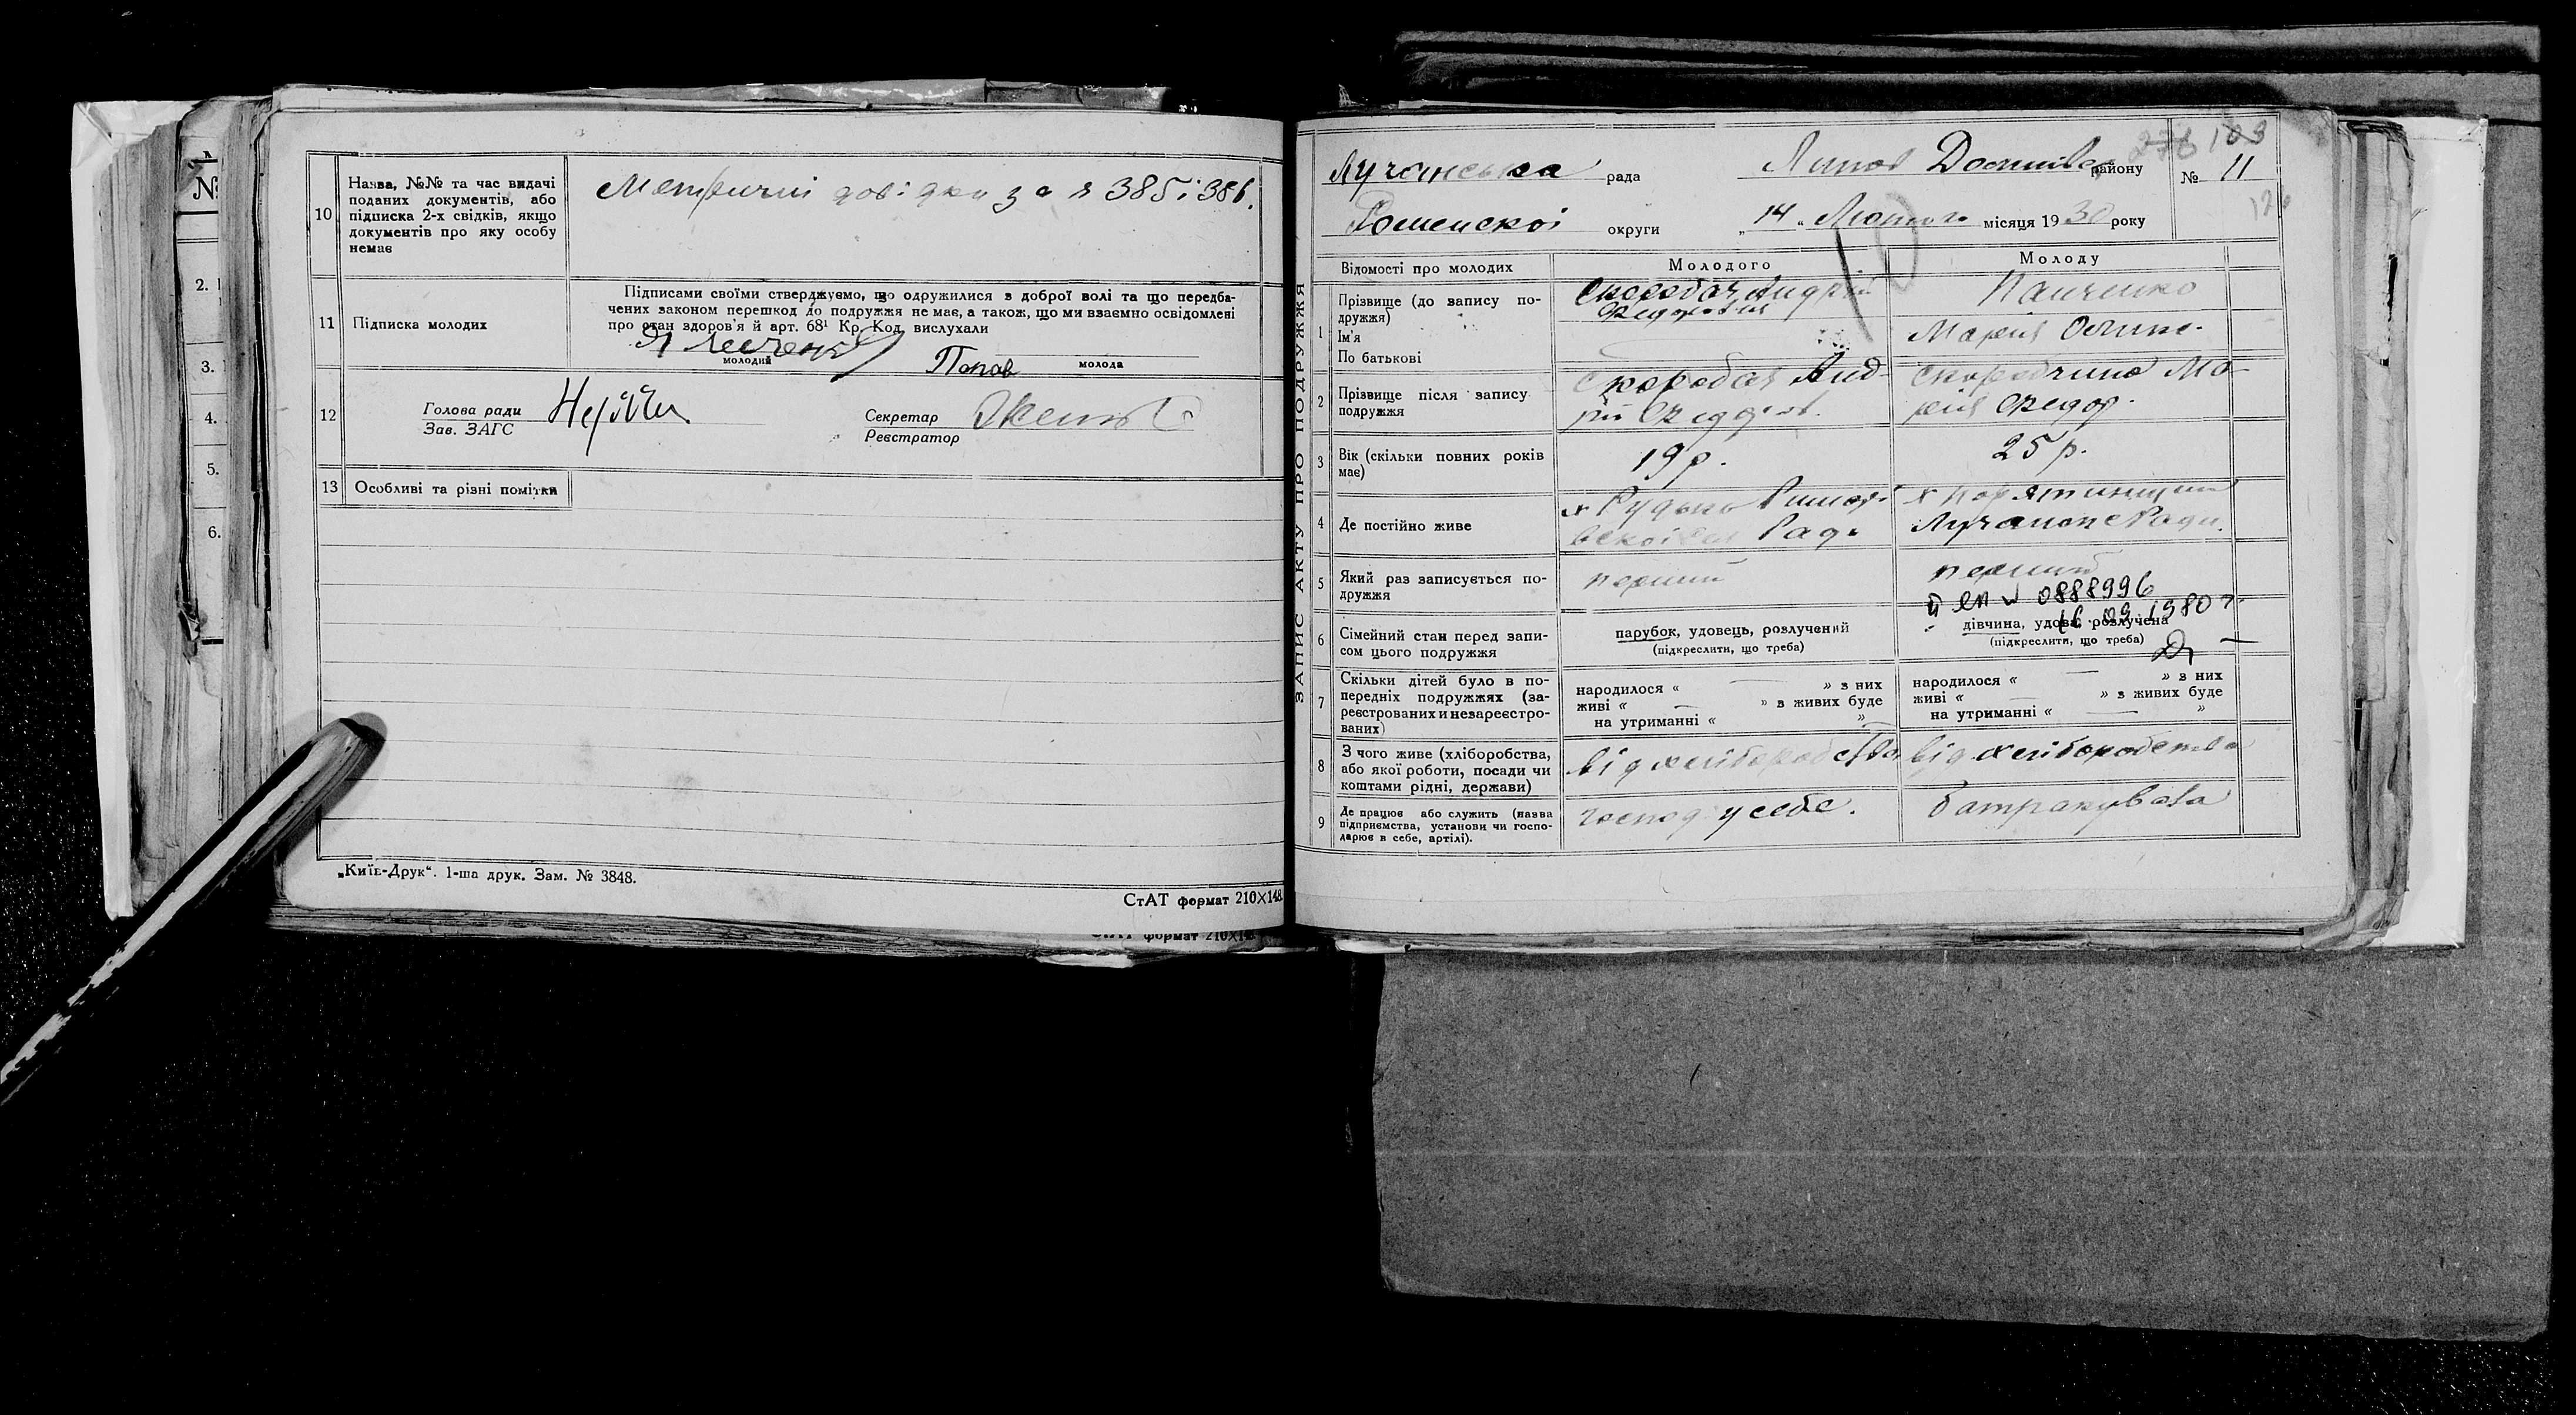 10
Назва, №№ та час видачі
поданих документів, або
підписка 2-х свідків, якщо
документів про яку особу
немає
Метричні довідки за № 385 і 386.
11
Підписка молодих
Підписами своїми стверджуємо, що одружилися з доброї волі та що передба-
чених законом перешкод до подружжя не має, а також, що ми взаємно освідомлені
про стан здоров'я й арт. 68¹ Кр. Код. вислухали
молодий
молода
12
Голова ради
Зав. ЗАГС
Секретар
Реєстратор
13
Особливі та різні помітки
„Київ-Друк“. 1-ша друк. Зам. № 3848.
СтАТ формат 210×148
СтАТ формат 210×148
№
2.
3.
4.
5.
6.
103
Лучанська рада
району
№ 11
Роменскої округи
„14“ Лютого місяця 1930 року
ЗАПИС АКТУ ПРО ПОДРУЖЖЯ
Відомості про молодих
Молодого
Молоду
1
Прізвище (до запису по-
дружжя)
Ім'я
По батькові
Скоробач Андрій
Федорович
Панченко
Марія
2
Прізвище після запису
подружжя
Скоробач Анд-
рій Федоров.
Ма-
рія Федор.
3
Вік (скільки повних років
має)
19 р.
25 р.
4
Де постійно живе
х
Рад.
х
Лучанске Ради.
5
Який раз записується по-
дружжя
перший
перший
0888996
1980 г.
6
Сімейний стан перед запи-
сом цього подружжя
парубок, удовець, розлучений
(підкреслити, що треба)
дівчина, удова, розлучена
(підкреслити, що треба)
7
Скільки дітей було в по-
передніх подружжях (за-
реєстрованих и незареєстро-
ваних)
народилося « — » з них
живі « — » з живих буде
на утриманні « »
народилося « — » з них
живі « — » з живих буде
на утриманні « — »
8
З чого живе (хліборобства,
або якої роботи, посади чи
коштами рідні, держави)
від хліборобства
від хліборобства
9
Де працює або служить (назва
підприємства, установи чи госпо-
дарює в себе, артілі).
господ у себе.
батракувала